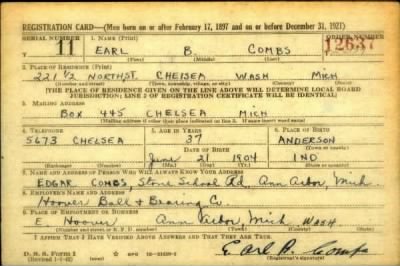 REGISTRATION CARD—(Men born on or after February 17, 1897 and on or before December 31, 1921)
SERIAL NUMBER 1. NAME (Print) ORDER NUMBER
11 EARL B. COMBS 12637
(First) (Middle) (Last)
2. PLACE OF RESIDENCE (Print)
221 1/2 NORTH ST. CHELSEA WASH MICH
(Number and street) (Town, township, village, or city) (County) (State)
[THE PLACE OF RESIDENCE GIVEN ON THE LINE ABOVE WILL DETERMINE LOCAL BOARD
JURISDICTION; LINE 2 OF REGISTRATION CERTIFICATE WILL BE IDENTICAL]
3. MAILING ADDRESS
BOX 445 CHELSEA MICH
[Mailing address if other than place indicated on line 2. If same insert word same]
4. TELEPHONE 5. AGE IN YEARS 6. PLACE OF BIRTH
5673 CHELSEA 37 ANDERSON
DATE OF BIRTH (Town or county)
June 21 1904 IND
(Exchange) (Number) (Mo.) (Day) (Yr.) (State or country)
7. NAME AND ADDRESS OF PERSON WHO WILL ALWAYS KNOW YOUR ADDRESS
EDGAR COMBS, Stone School Rd, Ann Arbor, Mich.
8. EMPLOYER'S NAME AND ADDRESS
Hoover Ball & Bearing Co.
9. PLACE OF EMPLOYMENT OR BUSINESS
E. Hoover Ann Arbor, Mich WASH
(Number and street or R. F. D. number) (Town) (County) (State)
I AFFIRM THAT I HAVE VERIFIED ABOVE ANSWERS AND THAT THEY ARE TRUE.
D. S. S. Form 1
(Revised 1-1-42) (over) Earl B. Combs
(Registrant's signature)